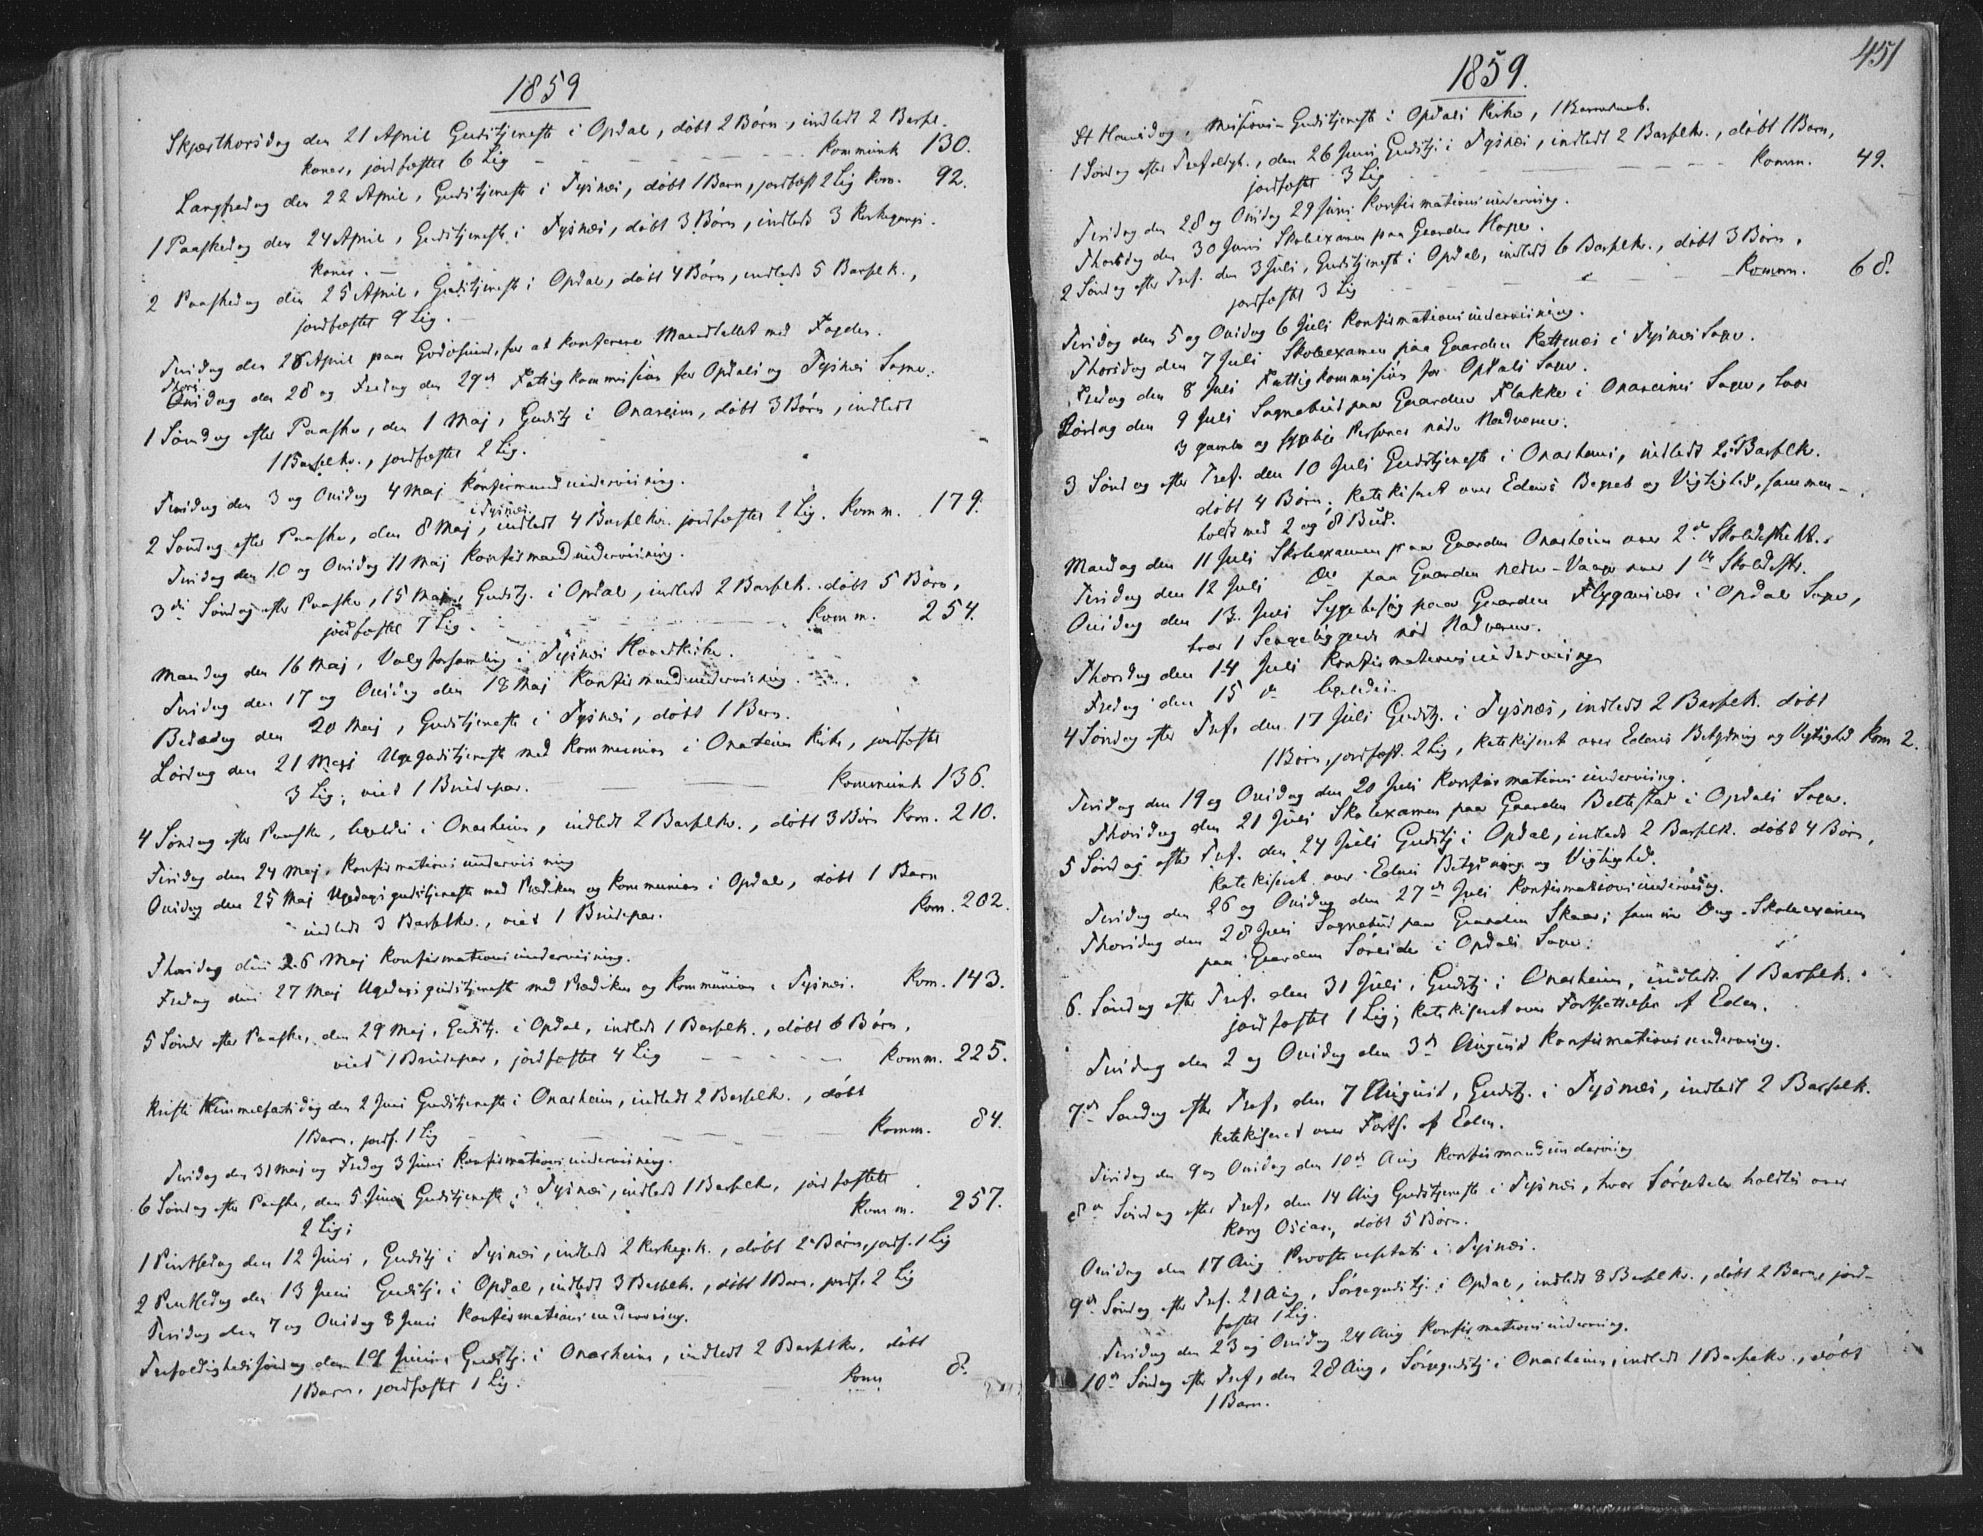 1859
Skjærthorsdag den 21 April Gudstjeneste i Opdal, døbt 2 Børn, indledt 2 Barsel-
koner, jordfæstet 6 Lig Kommunik 130.
Langfredag den 22 April, Gudstjeneste i Tysnæs, døbt 1 Barn, jordfæst 2 Lig Kom. 92.
1 Paaskedag den 24 April, Gudstjeneste i Tysnæs, døbt 3 Børn, indledt 3 Kirkegangs-
koner.
2 Paaskedag den 25 April, Gudstjeneste i Opdal, døbt 4 Børn, indledt 5 Barselk.,
jordfæstet 9 Lig.
Tirsdag den 26 April paa Godøsund, for at konferere Mandtallet med Fogden.
Thors-
dag den 28 og Fredag den 29de Fattigkommission for Opdals og Tysnæs Sogne.
1 Søndag efter Paaske, den 1 Maj, Gudstj i Onareim, døbt 3 Børn, indledt
1 Barselk., jordfæstet 2 Lig.
Tirsdag den 3 og Onsdag 4 Maj Konfirmandunderviisning.
i Tysnæs
2 Søndag efter Paaske, den 8 Maj, indledt 4 Barselko. jordfæstet 2 Lig. Komm. 179.
Tirsdag den 10 og Onsdag 11 Maj Konfirmandunderviisning.
3die Søndag efter Paaske, 15 Maj, Gudstj. i Opdal, indledt 2 Barselk. døbt 5 Børn,
jordfæstet 7 Lig. Komm. 254.
Mandag den 16 Maj, Valgforsamling i Tysnæs Hovedkirke.
Tirsdag den 17 og Onsdag den 18 Maj Konfirmandunderviisning.
Bededag den 20 Maj, Gudstjeneste i Tysnæs, døbt 1 Barn.
Lørdag den 21 Maj Ugegudstjeneste med Kommunion i Onareim Kirke, jordfæstet
3 Lig, viet 1 Brudepar. Kommunik 136.
4 Søndag efter Paaske, ligeledes i Onarheim, indledt 2 Barselko., døbt 3 Børn Kom. 210.
Tirsdag den 24 Maj, Konfirmationsunderviisning
Onsdag den 25 Maj Ugedagsgudstjeneste med Prædiken og Kommunion i Opdal, døbt 1 Barn
indledt 3 Barselko., viet 1 Brudepar. Kom. 202.
Thorsdag den 26 Maj Konfirmationsunderviisning.
Fredag den 27 Maj Ugedagsgudstjeneste med Prædiken og Kommunion i Tysnæs. Kom. 143.
5 Sønd. efter Paaske, den 29 Maj, Gudstj. i Opdal, indledt 1 Barselk., døbt 6 Børn,
viet 1 Brudepar, jordfæstet 4 Lig Komm. 225.
Kristi Himmelfartsdag den 2 Juni Gudstjeneste i Onarheim, indledt 2 Barselko., døbt
1 Barn, jordf. 1 Lig Komm. 84.
Tirsdag den 31 Maj og Fredag 3 Juni Konfirmationsunderviisning.
6 Søndag efter Paaske, den 5 Juni Gudstjeneste i Tysnæs, indledt 1 Barselko, jordfæstet
2 Lig; Komm. 257.
1 Pintsedag den 12 Juni, Gudstj i Tysnæs, indledt 2 Kirkeg.k., døbt 2 Børn, jordf. 1 Lig
2 Pintsedag den 13 Juni Gudstj. i Opdal, indledt 3 Barselk., døbt 1 Barn, jordf. 2 Lig
Tirsdag den 7 og Onsdag 8 Juni Konfirmationsunderviisning.
Trefoldighedssøndag den 19 Juni, Gudstj. i Onarheim, indledt 2 Barselko, døbt
1 Barn, jordfæstet 1 Lig. Kom 8.
451
1859.
St Hansdag, Missions-Gudstjeneste i Opdals Kirke, 1 Barnedaab.
1 Søndag efter Trefoldigh., den 26 Juni, Gudstj. i Tysnæs, indledt 2 Barselk., døbt 1 Barn,
jordfæstet 3 Lig Komm. 49.
Tirsdag den 28 og Onsdag 29 Juni Konfirmationsunderviisning.
Thorsdag den 30 Juni Skoleexamen paa Gaarden Hope.
2 Søndag efter Tref. den 3 Juli, Gudstjeneste i Opdal, indledt 6 Barselko., døbt 3 Børn,
jordfæstet 3 Lig Komm. 68.
Tirsdag den 5 og Onsdag 6 Juli Konfirmationsunderviisning.
Thorsdag den 7 Juli Skoleexamen paa Gaarden Kettenæs i Tysnæs Sogn.
Fredag den 8 Juli Fattigkommission for Opdals Sogn.
Lørdag den 9 Juli Sognebud paa Gaarden Flakke i Onareims Sogn, hvor
3 gamle og sygelige Personer nøde Nadveren.
3 Søndag efter Tref. den 10 Juli Gudstjeneste i Onarheim, indledt 2 Barselk.
døbt 4 Børn, katekiseret over Edens Begreb og Vigtighed, sammen-
holdt med 2 og 8 Bud.
Mandag den 11 Juli Skoleexamen paa Gaarden Onarheim over 2det Skoledistrikt.
Tirsdag den 12 Juli do paa Gaarden nedre-Vaage over 1ste Skoledistr.
Onsdag den 13. Juli Sygebesøg paa Gaarden Flyganes i Opdal Sogn,
hvor 1 Sengeliggende nød Nadveren.
Thorsdag den 14 Juli Konfirmationsunderviisning
Fredag den 15 de ligeledes.
4 Søndag efter Tref, den 17 Juli Gudstj. i Tysnæs, indledt 2 Barselk. døbt
1 Børn, jordfæst. 2 Lig, katekiseret over Edens Betydning og Vigtighed Kom 2.
Tirsdag den 19 og Onsdag den 20 Juli Konfirmationsunderviisning.
Thorsdag den 21 Juli Skoleexamen paa Gaarden Beltestad i Opdals Sogn.
5 Søndag efter Tref. den 24 Juli Gudstj i Opdal, indledt 2 Barselk. døbt 4 Børn,
katekiseret over Edens Betydning og Vigtighed.
Tirsdag den 26 og Onsdag den 27de Juli Konfirmationsunderviisning.
Thorsdag den 28 Juli Sognebud paa Gaarden Skaar; samme Dag Skoleexamen
paa Gaarden Søreide i Opdals Sogn.
6. Søndag efter Tref. den 31 Juli, Gudstj i Onarheim, indledt 1 Barselk.
jordfæstet 1 Lig; katekiseret over Fortsættelsen af Eden.
Tirsdag den 2 og Onsdag den 3de August Konfirmationsunderviisning.
7de Søndag efter Tref, den 7 August, Gudstj. i Tysnæs, indledt 2 Barselk.
katekiseret over Forts. af Eden.
Tirsdag den 9 og Onsdag den 10de Aug Konfirmandunderviisning
8de Søndag efter Tref, den 14 Aug Gudstjeneste i Tysnæs, hvor Sørgetale holdtes over
Kong Oscar, døbt 5 Børn.
Onsdag den 17 Aug Provstevisitats i Tysnæs.
9de Søndag efter Tref. 21 Aug, Sørgegudstj. i Opdal, indledt 8 Barselko., døbt 2 Børn, jord-
fæstet 1 Lig.
Tirsdag den 23 og Onsdag 24 Aug Konfirmationsunderviisning.
10de Søndag efter Tref, den 28 Aug, Sørgegudstj i Onarheim, indledt 1 Barselko, døbt
1 Barn.